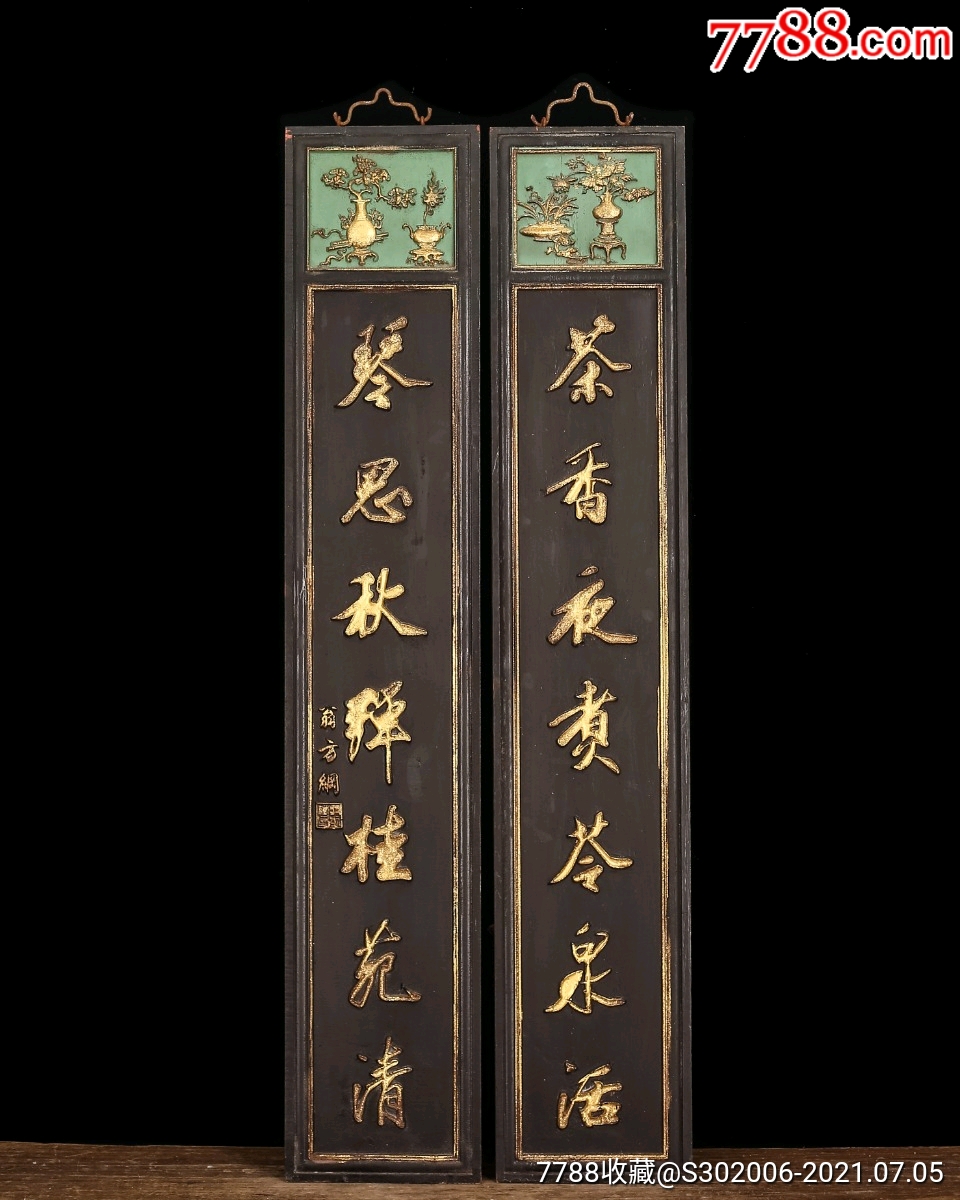 7788.com
茶香夜煮苓泉活
琴思秋弹桂苑清
翁方綱
7788收藏@S302006-2021.07.05